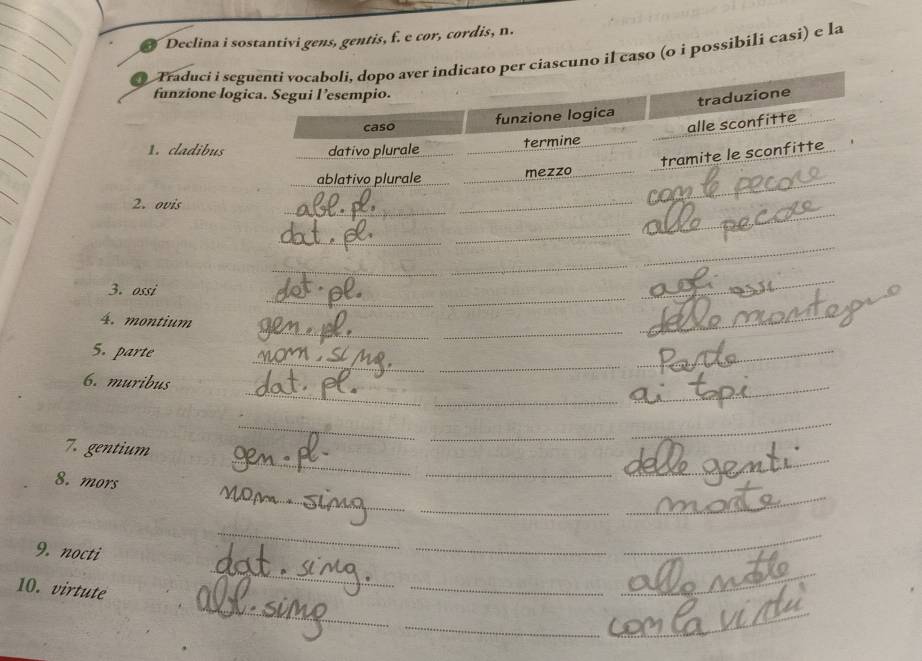 3 Declina i sostantivi gens, gentis, f. e cor, cordis, n.
4 Traduci i seguenti vocaboli, dopo aver indicato per ciascuno il caso (o i possibili casi) e la
funzione logica. Segui l'esempio.
caso funzione logica traduzione
1. cladibus dativo plurale termine alle sconfitte
ablativo plurale mezzo tramite le sconfitte
2. ovis abl. pl. con le pecore
dat. pl. alle pecore
3. ossi dat. pl. agli ossi
4. montium gen. pl. delle montagne
5. parte nom. sing. Parte
6. muribus dat. pl. ai topi
7. gentium gen. pl. delle genti
8. mors nom. sing morte
9. nocti dat. sing. alle notte
10. virtute abl. sing con la virtu